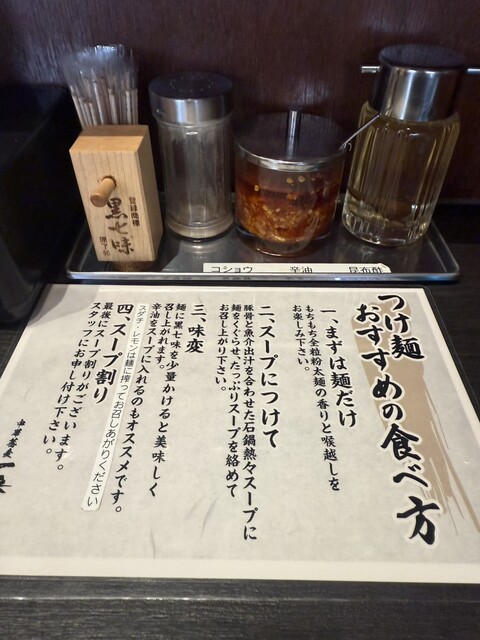 登録商標
黒七味
原了郭
コショウ
辛油
昆布酢
つけ麺
おすすめの食べ方
一、まずは麺だけ
もちもち全粒粉太麺の香りと喉越しを
お楽しみ下さい。
二、スープにつけて
豚骨と魚介出汁を合わせた石鍋熱々スープに
麺をくぐらせ、たっぷりスープを絡めて
お召し上がり下さい。
三、味変
麺に黒七味を少量かけると美味しく
召し上がれます。
辛油をスープに入れるのもオススメです。
スダチ・レモンは麺に搾ってお召しあがりください
四、スープ割り
最後にスープ割りがございます。
スタッフにお申し付け下さい。
中華蕎麦